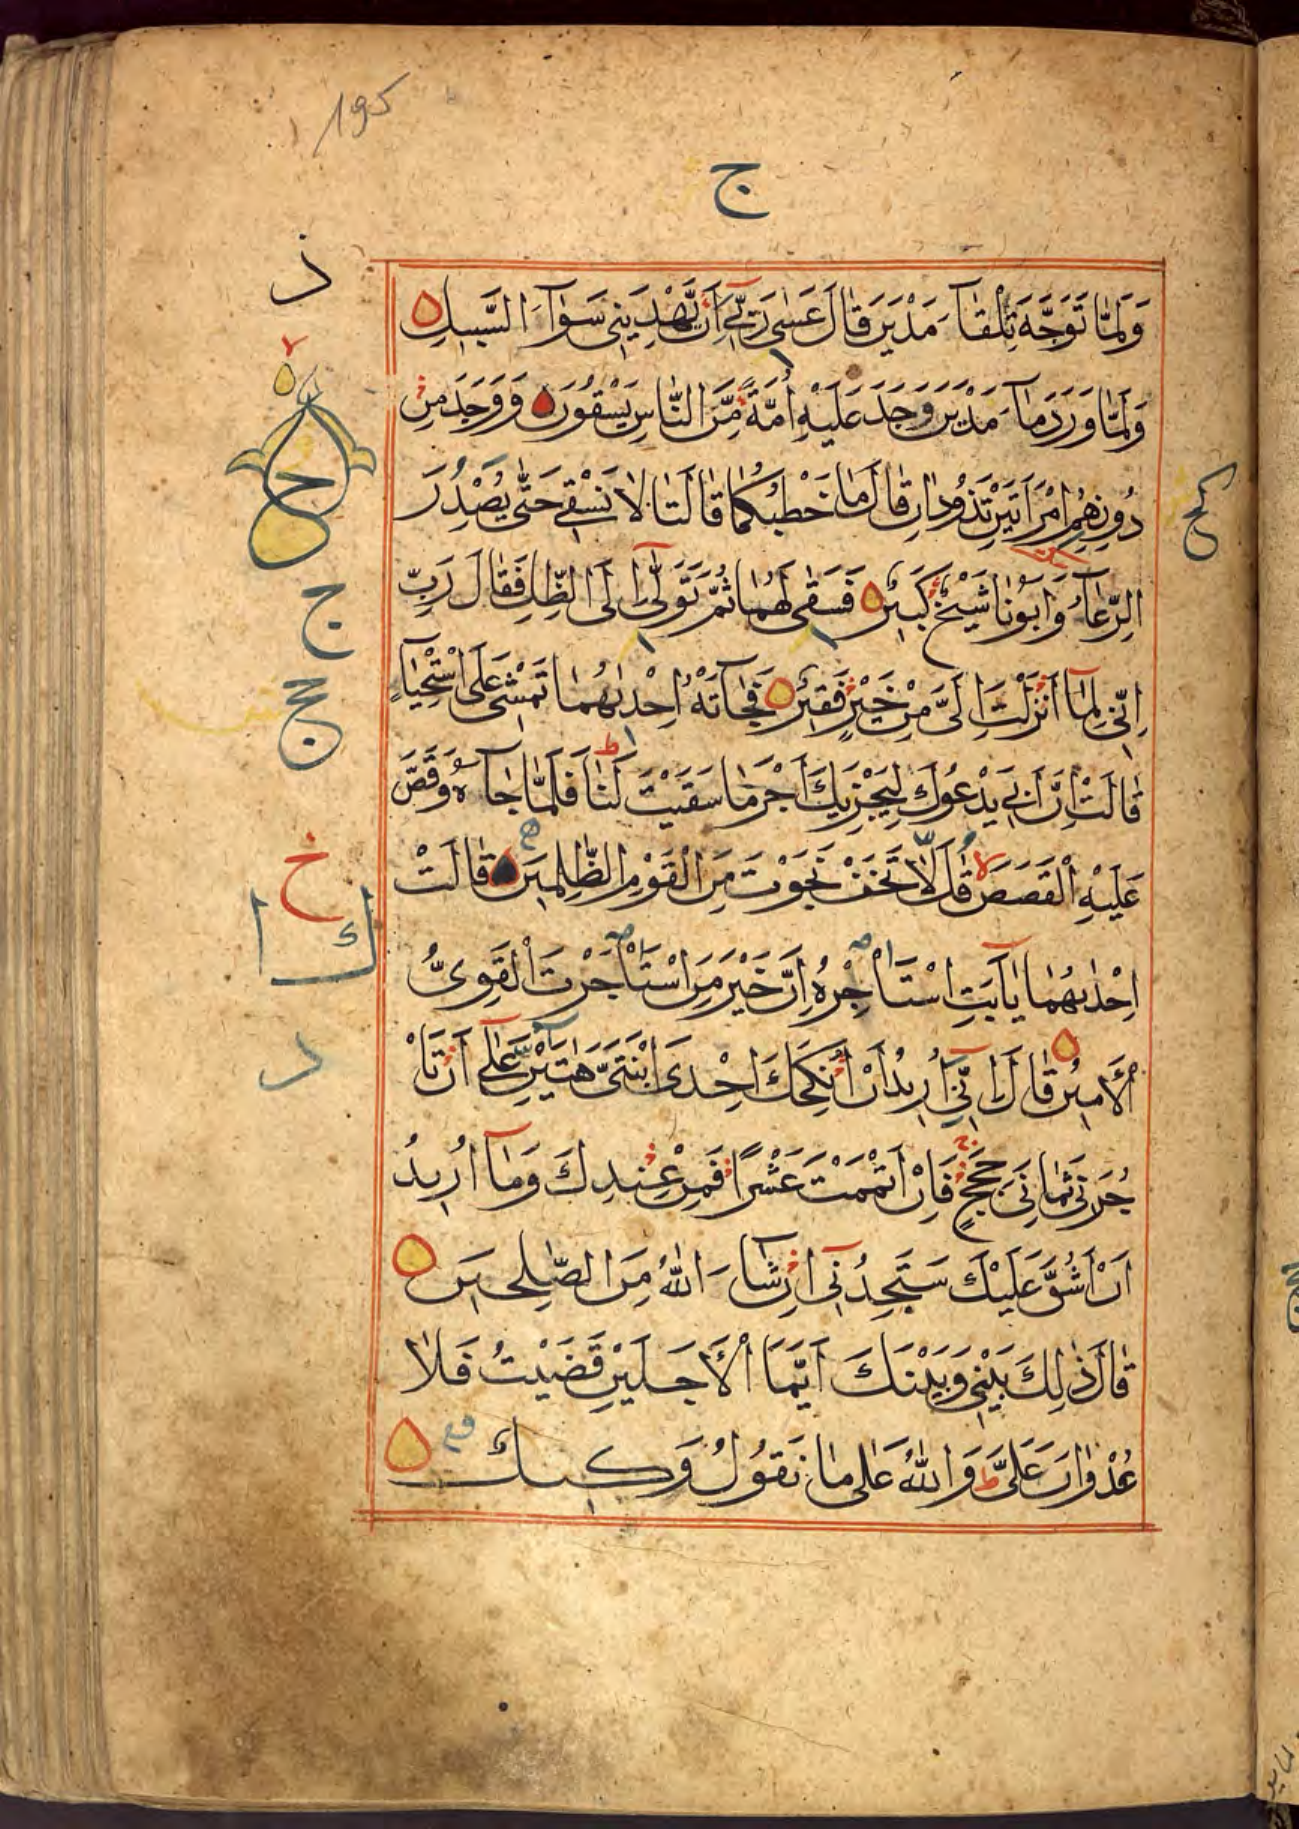 195
ج
وَلَمَّا تَوَجَّهَ تِلْقَآءَ مَدْيَنَ قَالَ عَسٰى رَبّٖٓى اَنْ يَّهْدِيَنٖى سَوَآءَ السَّبٖيلِ
وَلَمَّا وَرَدَ مَآءَ مَدْيَنَ وَجَدَ عَلَيْهِ اُمَّةً مِّنَ النَّاسِ يَسْقُونَ وَ وَجَدَ مِنْ
دُونِهِمُ امْرَاَتَيْنِ تَذُودَانِ قَالَ مَا خَطْبُكُمَا قَالَتَا لَا نَسْقٖى حَتّٰى يُصْدِرَ
الرِّعَآءُ وَاَبُونَا شَيْخٌ كَبٖيرٌ فَسَقٰى لَهُمَا ثُمَّ تَوَلّٰٓى اِلَى الظِّلِّ فَقَالَ رَبِّ
اِنّٖى لِمَآ اَنْزَلْتَ اِلَىَّ مِنْ خَيْرٍ فَقٖيرٌ فَجَآءَتْهُ اِحْدٰىهُمَا تَمْشٖى عَلَى اسْتِحْيَآءٍ
قَالَتْ اِنَّ اَبٖى يَدْعُوكَ لِيَجْزِيَكَ اَجْرَ مَا سَقَيْتَ لَنَا فَلَمَّا جَآءَهُ وَقَصَّ
عَلَيْهِ الْقَصَصَ قَالَ لَا تَخَفْ نَجَوْتَ مِنَ الْقَوْمِ الظّٰلِمٖينَ قَالَتْ
اِحْدٰىهُمَا يَآاَبَتِ اسْتَاْجِرْهُ اِنَّ خَيْرَ مَنِ اسْتَاْجَرْتَ الْقَوِىُّ
الْاَمٖينُ قَالَ اِنّٖٓى اُرٖيدُ اَنْ اُنْكِحَكَ اِحْدَى ابْنَتَىَّ هٰتَيْنِ عَلٰٓى اَنْ تَاْ
جُرَنٖى ثَمَانِىَ حِجَجٍ فَاِنْ اَتْمَمْتَ عَشْرًا فَمِنْ عِنْدِكَ وَمَآ اُرٖيدُ
اَنْ اَشُقَّ عَلَيْكَ سَتَجِدُنٖٓى اِنْ شَآءَ اللّٰهُ مِنَ الصّٰلِحٖينَ
قَالَ ذٰلِكَ بَيْنٖى وَبَيْنَكَ اَيَّمَا الْاَجَلَيْنِ قَضَيْتُ فَلَا
عُدْوَانَ عَلَىَّ وَاللّٰهُ عَلٰى مَا نَقُولُ وَكٖيلٌ